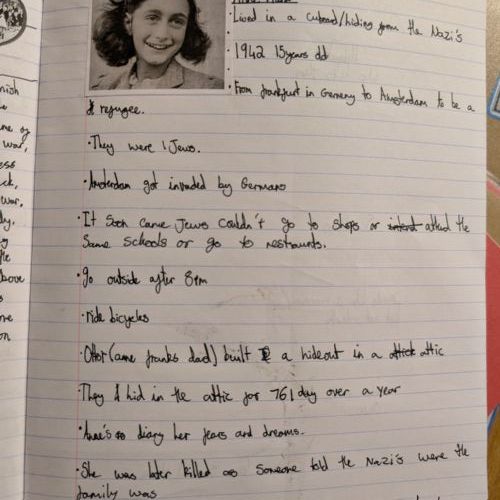 Anne Frank
·Lived in a cuboard/hiding from the Nazi's
·1942 15years old
·From frankfurt in Germeny to Amsterdam to be a
refugee.
·They were Jews.
·Amsterdam got invaded by Germans
·It Soon came Jews Couldn't go to shops or attend the
Same schools or go to restraunts.
·go outside after 8pm
·ride bicycles
·Otto(anne franks dad) built a hideout in a attic
·They hid in the attic for 761 day over a year
·Anne's diary her fears and dreams.
·She was later killed as Someone told the Nazi's were the
family was
nish
war,
ess
ck,
war.
dy.
above
re
on